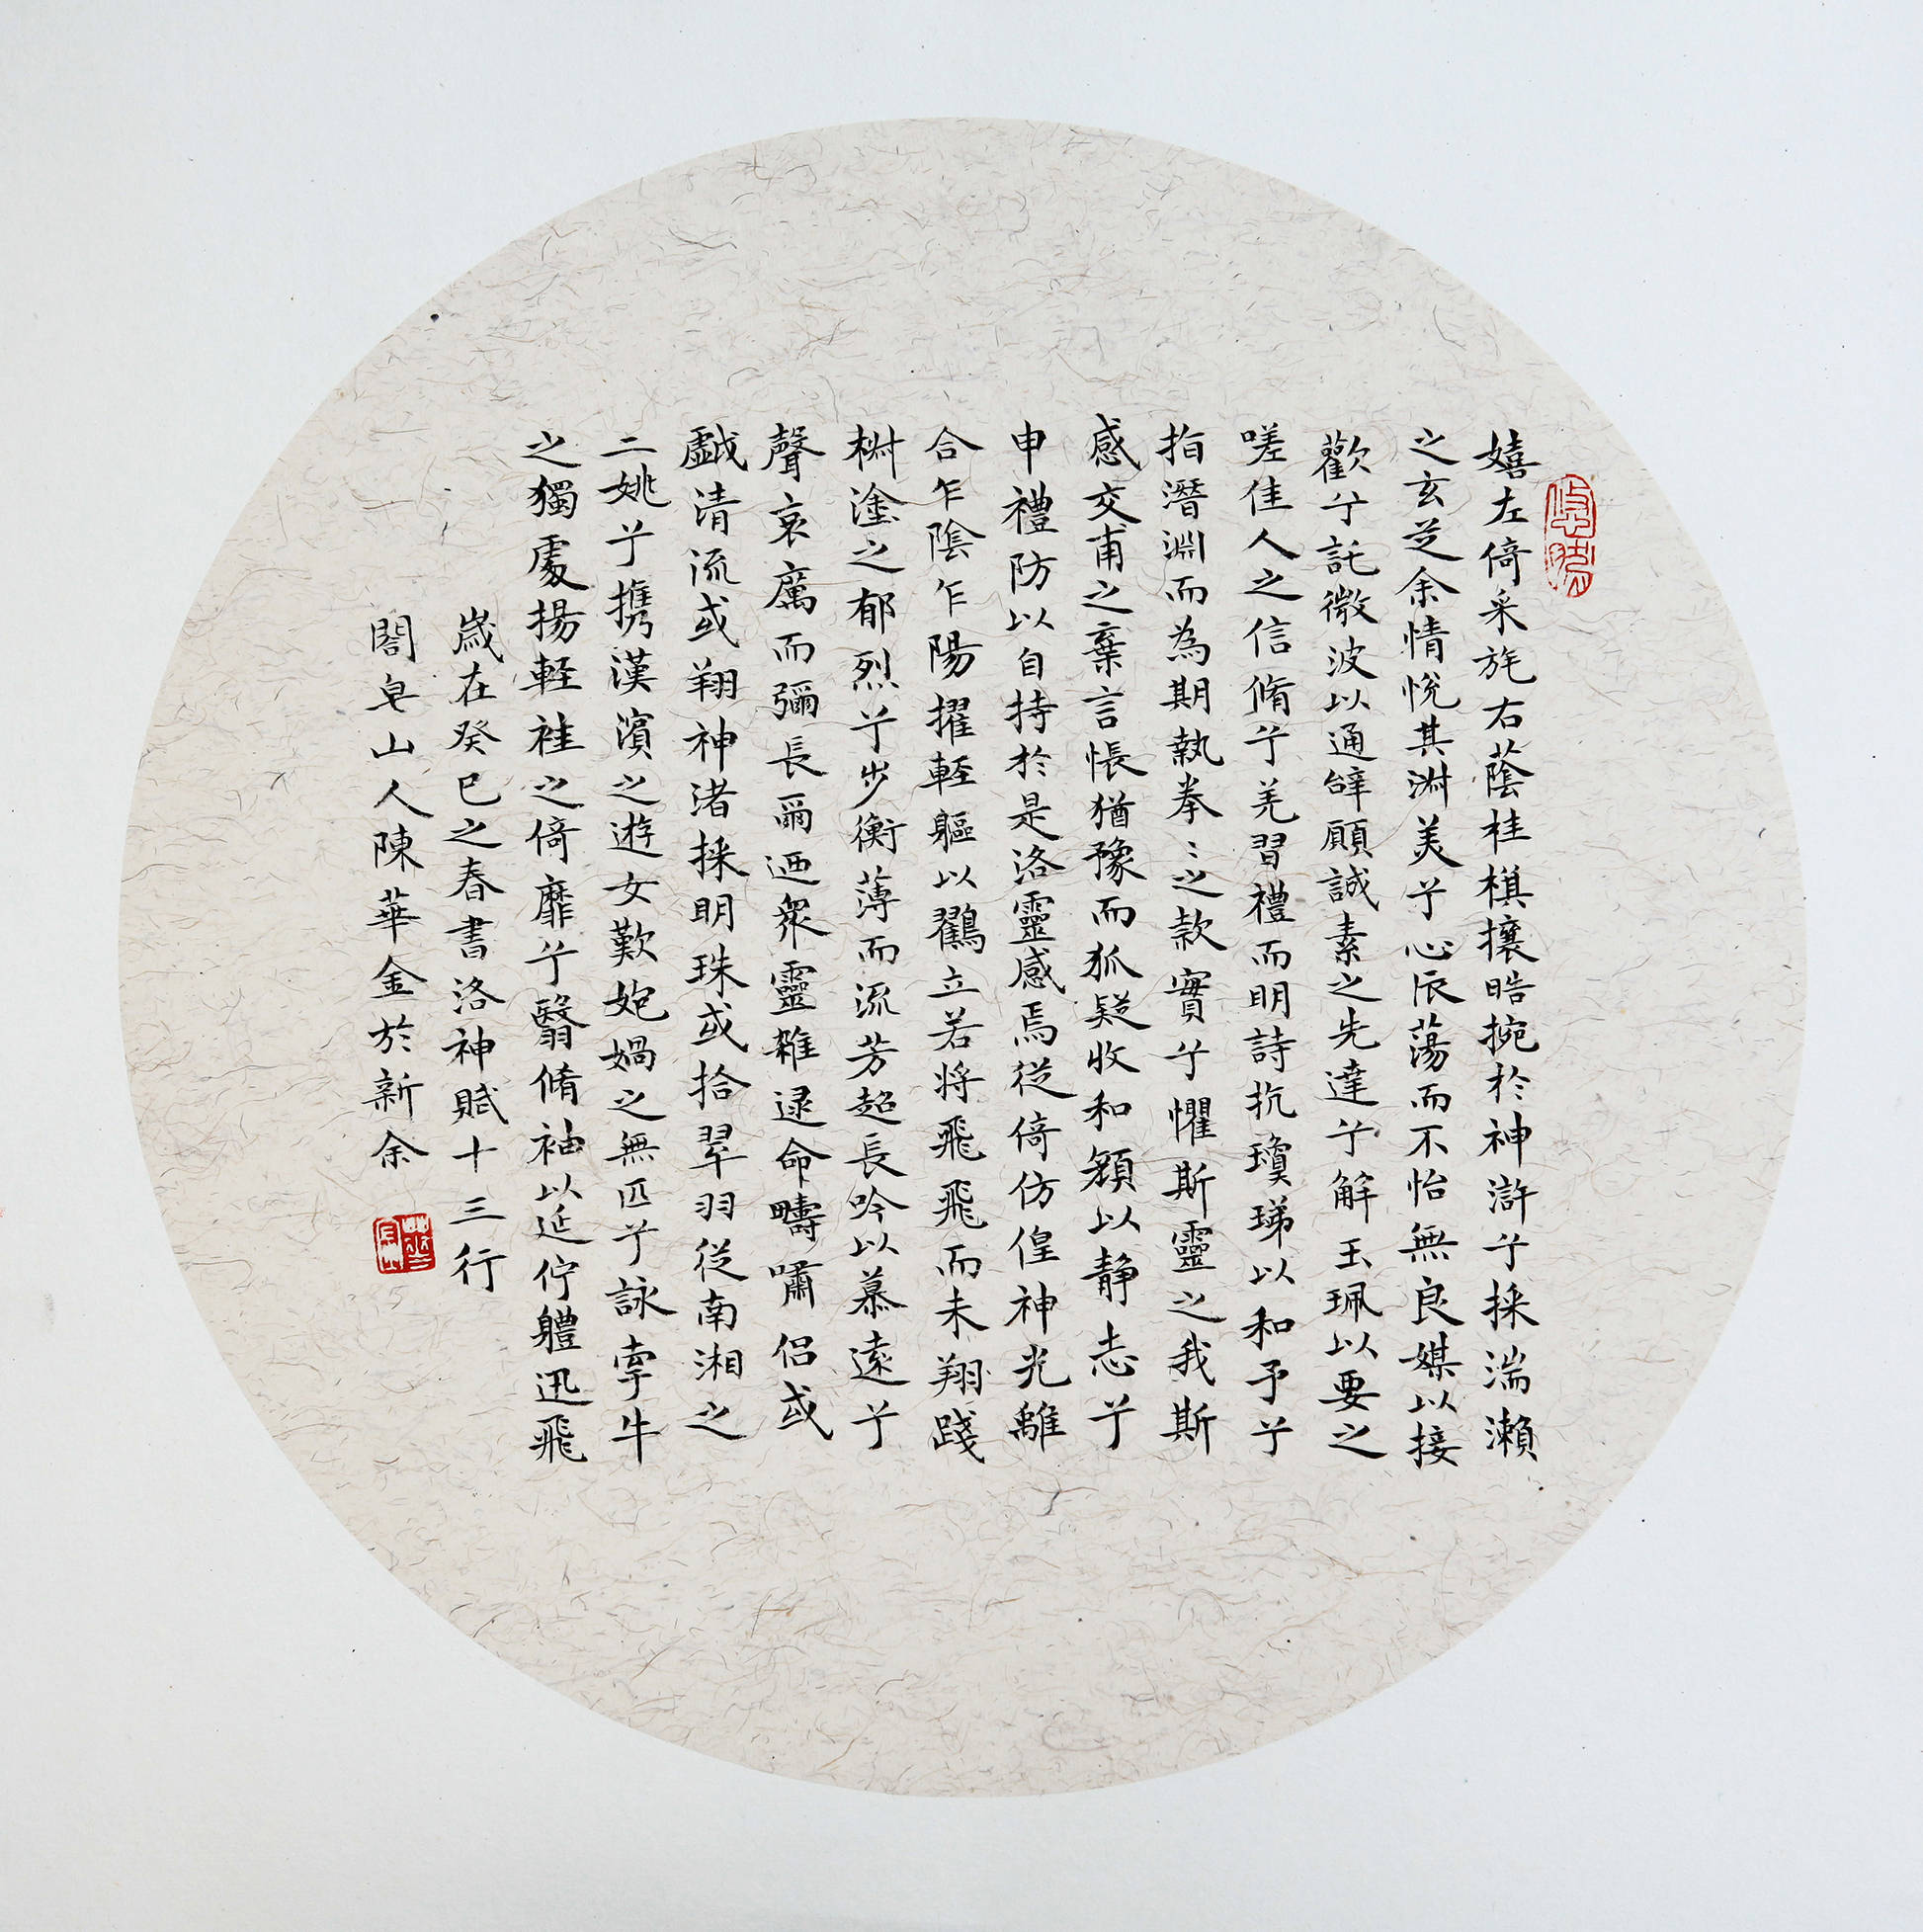 嬉左倚采旄右蔭桂棋攘皓捥於神滸兮採湍瀨
之玄芝余情悅其淋美兮心辰蕩而不怡無良媒以接
歡兮託微波以通辭願誠素之先達兮解玉珮以要之
嗟佳人之信脩兮羌習禮而明詩抗瓊珶以和予兮
指潛淵而為期執拳〻之款實兮懼斯靈之我斯
感交甫之棄言悵猶豫而狐疑收和顏以静志兮
申禮防以自持於是洛靈感焉從倚仿偟神光離
合乍陰乍陽擢輕軀以鸛立若將飛飛而未翔踐
椒塗之郁烈兮步衡薄而流芳超長吟以慕遠兮
聲哀厲而彌長爾迺衆靈雜遝命疇嘯侣或
戲清流或翔神渚採明珠或拾翠羽從南湘之
二姚兮携漢濱之遊女歎姽媧之無匹兮詠牽牛
之獨處揚輕袿之倚靡兮翳脩袖以延佇軆迅飛
歲在癸巳之春書洛神賦十三行
閤皂山人陳華金於新余